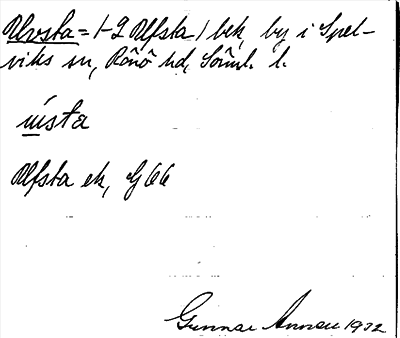 Ulvsta = 1-2 Ulfsta / bek, by i Spel-
viks sn, Rönö hd, Söml. l.
ùsta
Ulfsta ek, G 66
Gunnar 1932